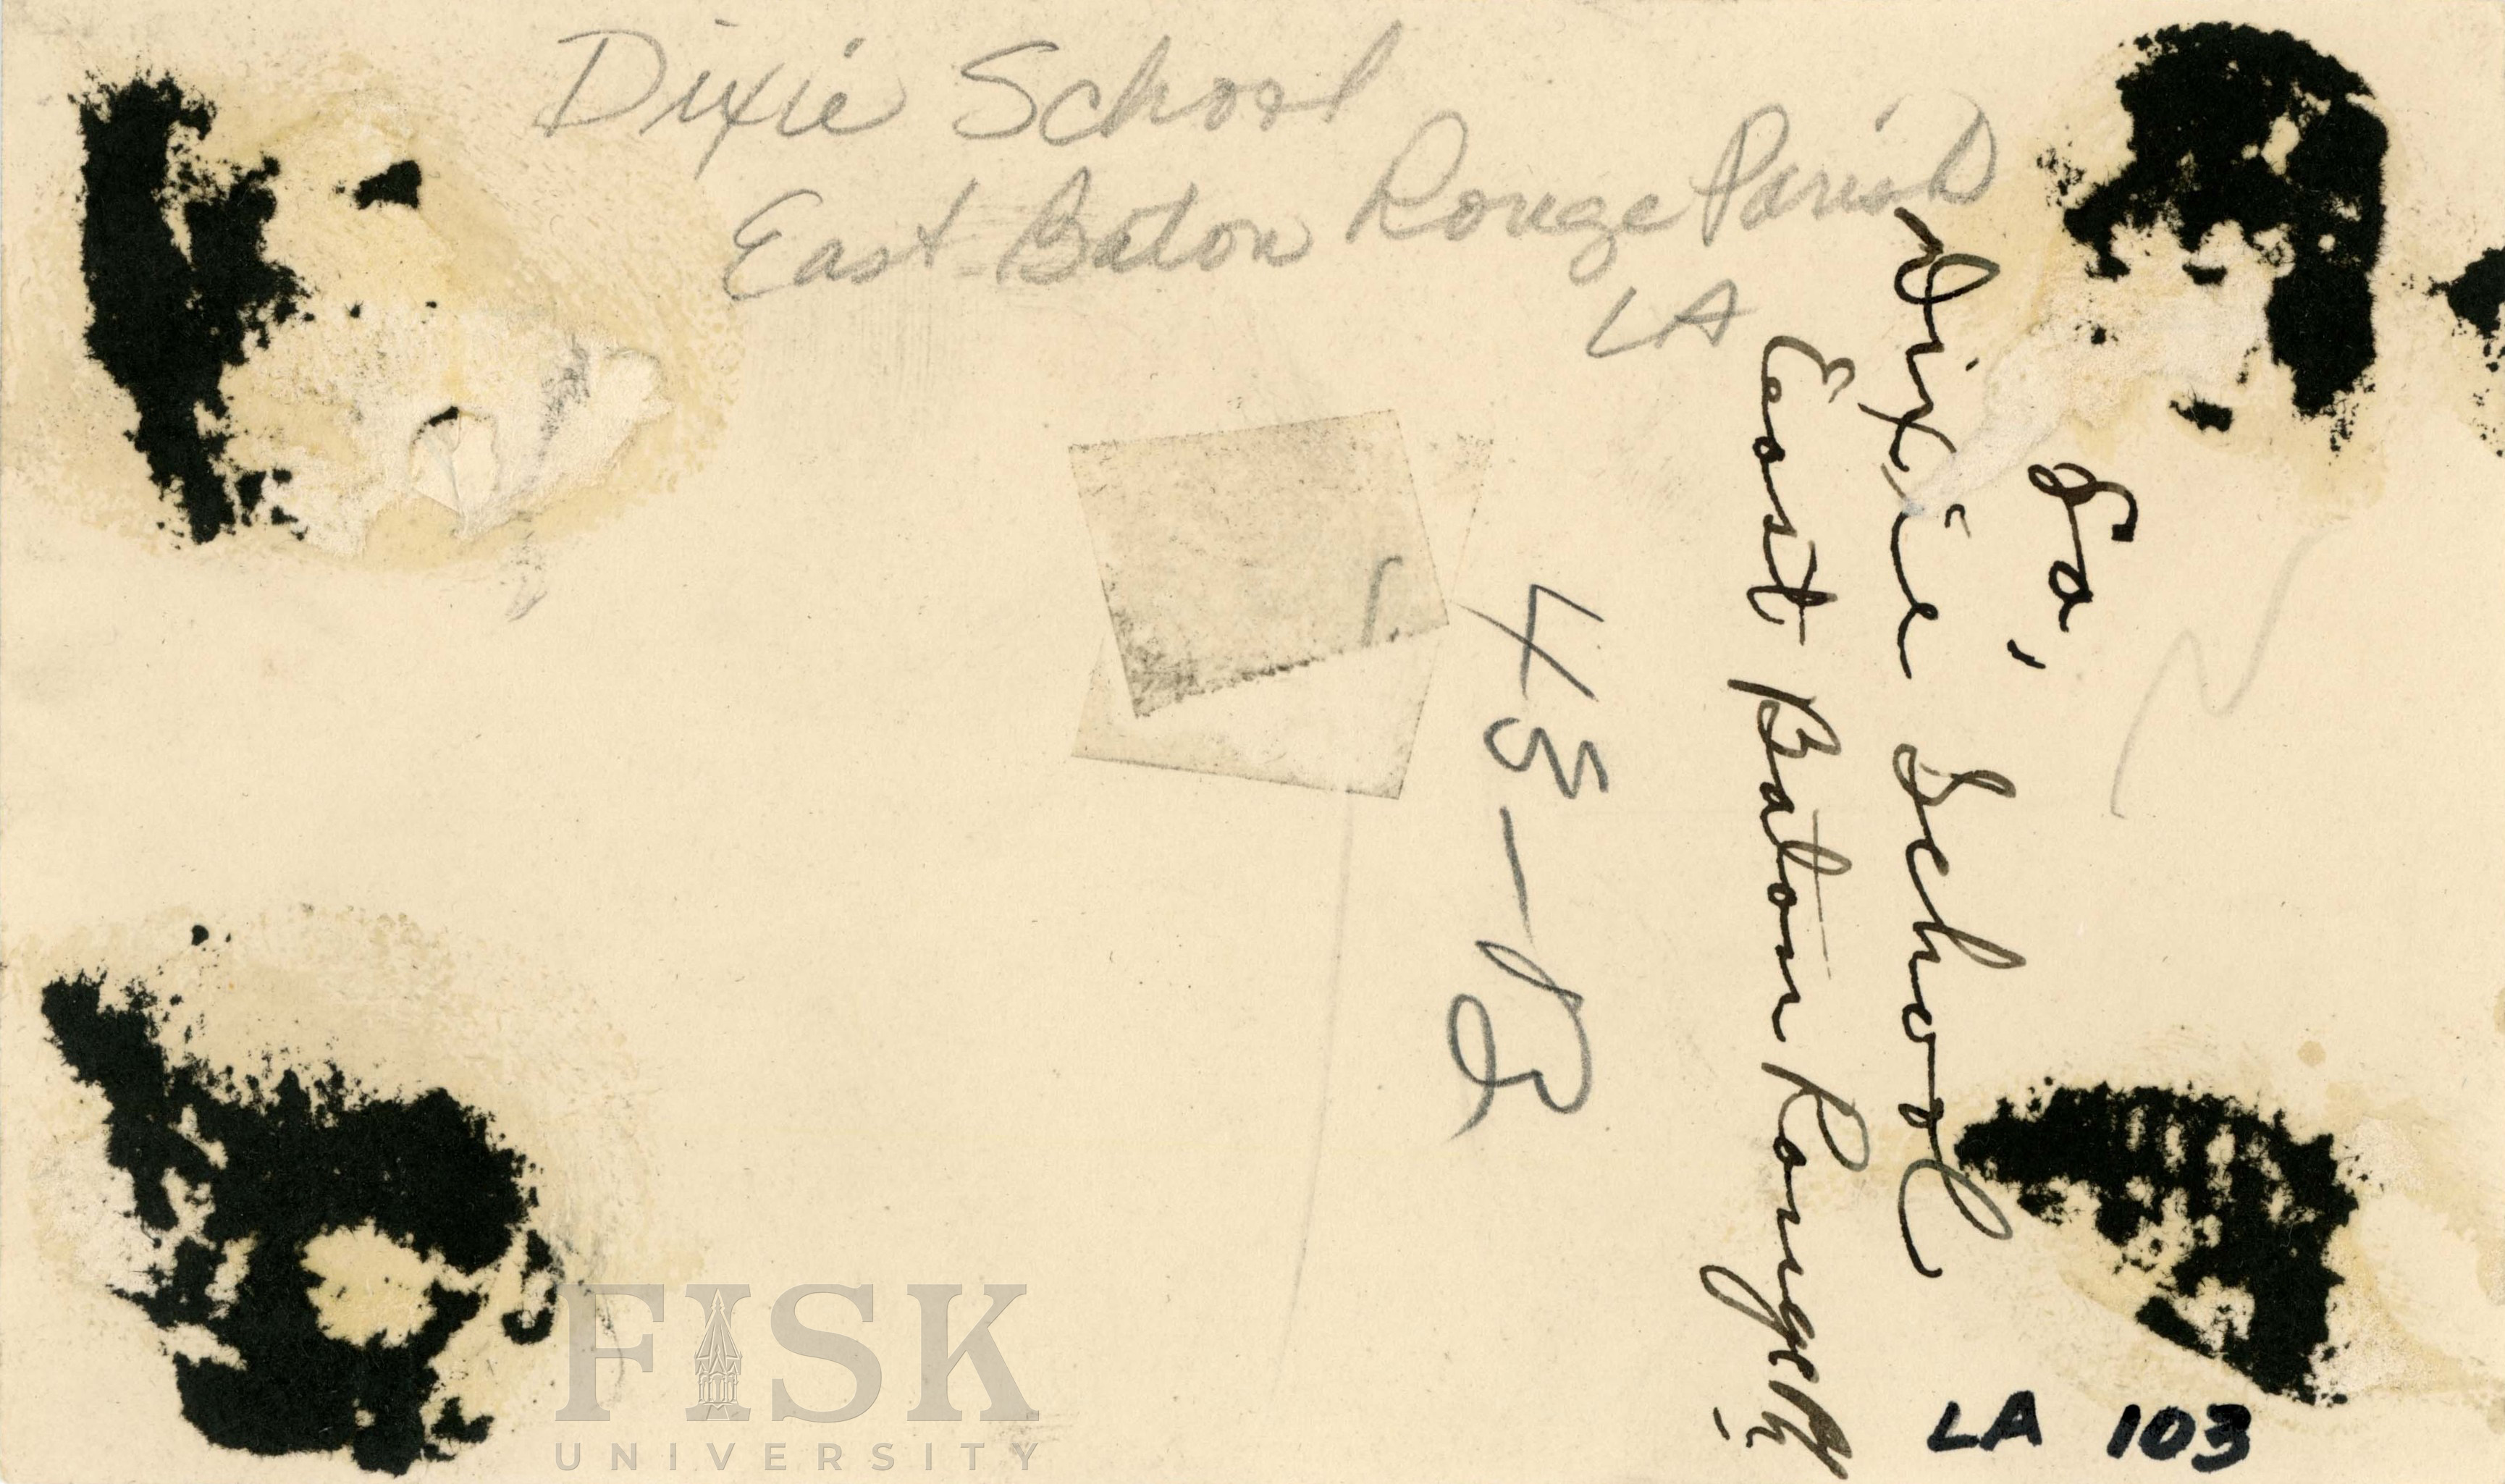 Dixie School
East Baton Rouge Parish
LA
La,
Dixie School
East Baton Rouge
43-B
LA 103
FISK
UNIVERSITY